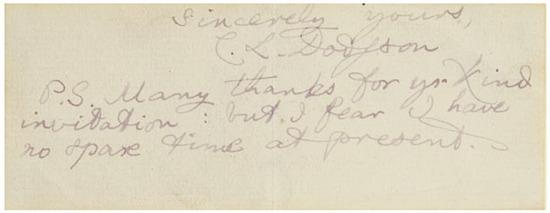 Sincerely yours,
C. L. Dodgson
P.S. Many thanks for yr. kind
invitation : but I fear I have
no spare time at present.